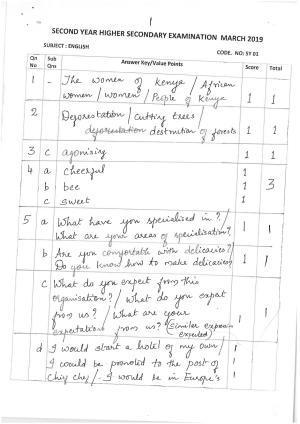 1
SECOND YEAR HIGHER SECONDARY EXAMINATION MARCH 2019
SUBJECT : ENGLISH CODE. NO: SY 01
Qn No Sub Qns Answer Key/Value Points Score Total
1 - The women of Kenya / African
women / women / People of Kenya 1 1
2 Deforestation / cutting trees /
deforestation destruction of forests 1 1
3 c agonising 1 1
4 a cheerful 1
b bee 1 3
c sweet 1
5 a What have you specialised in? /
What are your areas of specialisation? 1 1
b Are you comfortable with delicacies? /
Do you know how to make delicacies? 1 1
c What do you expect from this
organisation? / What do you expect
from us? / What are your
expectations from us? (similar expected) 1 1
d I would start a hotel of my own /
I would be promoted to the post of
chief / I would be in Europe's 1 1